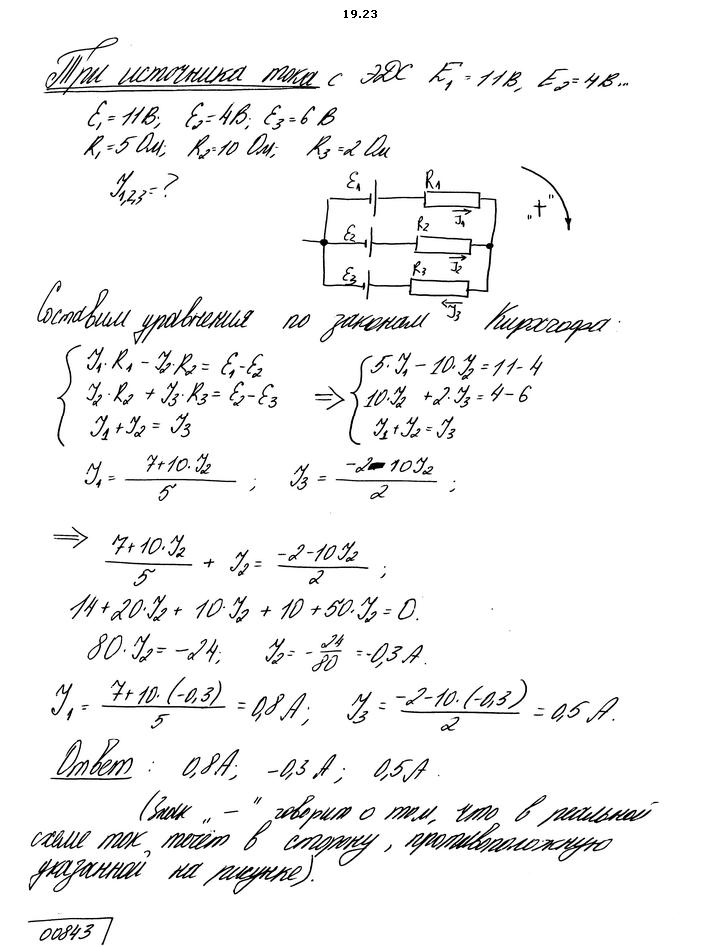 19.23
Три источника тока с ЭДС E1 = 11В, E2 = 4В...
E1 = 11В; E2 = 4В; E3 = 6 В
R1 = 5 Ом; R2 = 10 Ом; R3 = 2 Ом
J1,2,3 = ?
E1 R1
J1
„+"
E2 R2
J2
E3 R3
J3
Составим уравнения по законам Кирхгофа:
{ J1·R1 − J2·R2 = E1−E2 { 5·J1 − 10·J2 = 11−4
J2·R2 + J3·R3 = E2−E3 ⇒ 10·J2 + 2·J3 = 4−6
J1 + J2 = J3 J1 + J2 = J3
J1 = (7+10·J2)/5 ; J3 = (−2−10J2)/2 ;
⇒ (7+10·J2)/5 + J2 = (−2−10J2)/2 ;
14 + 20·J2 + 10·J2 + 10 + 50·J2 = 0.
80·J2 = −24; J2 = −24/80 = −0,3 А.
J1 = (7+10·(−0,3))/5 = 0,8 А; J3 = (−2−10·(−0,3))/2 = 0,5 А.
Ответ: 0,8А; −0,3 А; 0,5А.
(Знак „−" говорит о том, что в реальной
схеме ток течёт в сторону, противоположную
указанной на рисунке).
00843